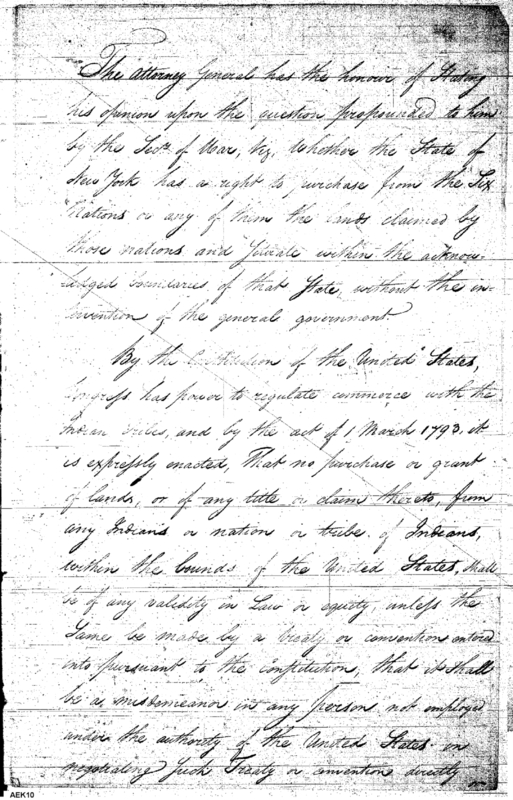 The Attorney General has the honour of Stating
his opinion upon the question propounded to him
by the Secy. of War, Viz, Whether the State of
New York has a right to purchase from the Six
Nations or any of them the lands claimed by
those nations and situate within the acknow-
ledged boundaries of that State, without the in-
tervention of the general government
By the Constitution of the United States,
Congress has power to regulate commerce with the
Indian tribes, and by the act of 1 March 1793. it
is expressly enacted, That no purchase or grant
of lands, or of any title or claim thereto, from
any Indians or nation or tribe of Indians,
within the bounds of the United States, shall
be of any validity in Law or equity unless the
Same be made by a treaty or convention entered
into pursuant to the Constitution, that it shall
be a misdemeanor in any person not employed
under the authority of the United States in
negotiating Such Treaty or convention directly or
AEK10